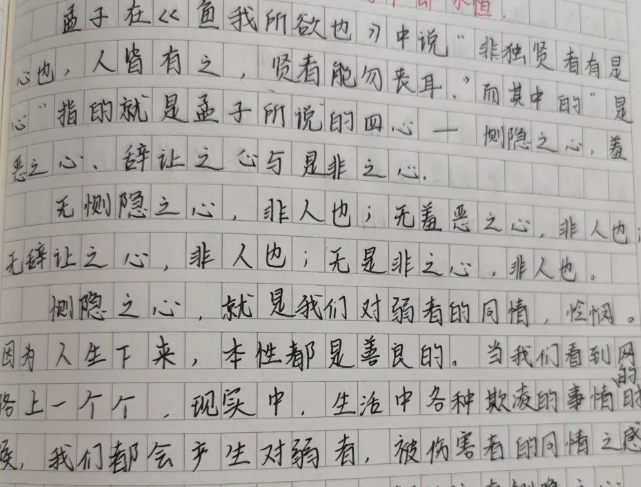 孟子在《鱼我所欲也》中说"非独贤者有是
心也,人皆有之,贤者能勿丧耳。"而其中的"是
心"指的就是孟子所说的四心一恻隐之心,羞
恶之心、辞让之心与是非之心.
无恻隐之心,非人也;无羞恶之心,非人也;
无辞让之心,非人也;无是非之心,非人也。
恻隐之心,就是我们对弱者的同情,怜悯。
因为人生下来,本性都是善良的。当我们看到网
络上一个个,现实中,生活中各种欺凌的事情的时
候,我们都会产生对弱者,被伤害者的同情之感